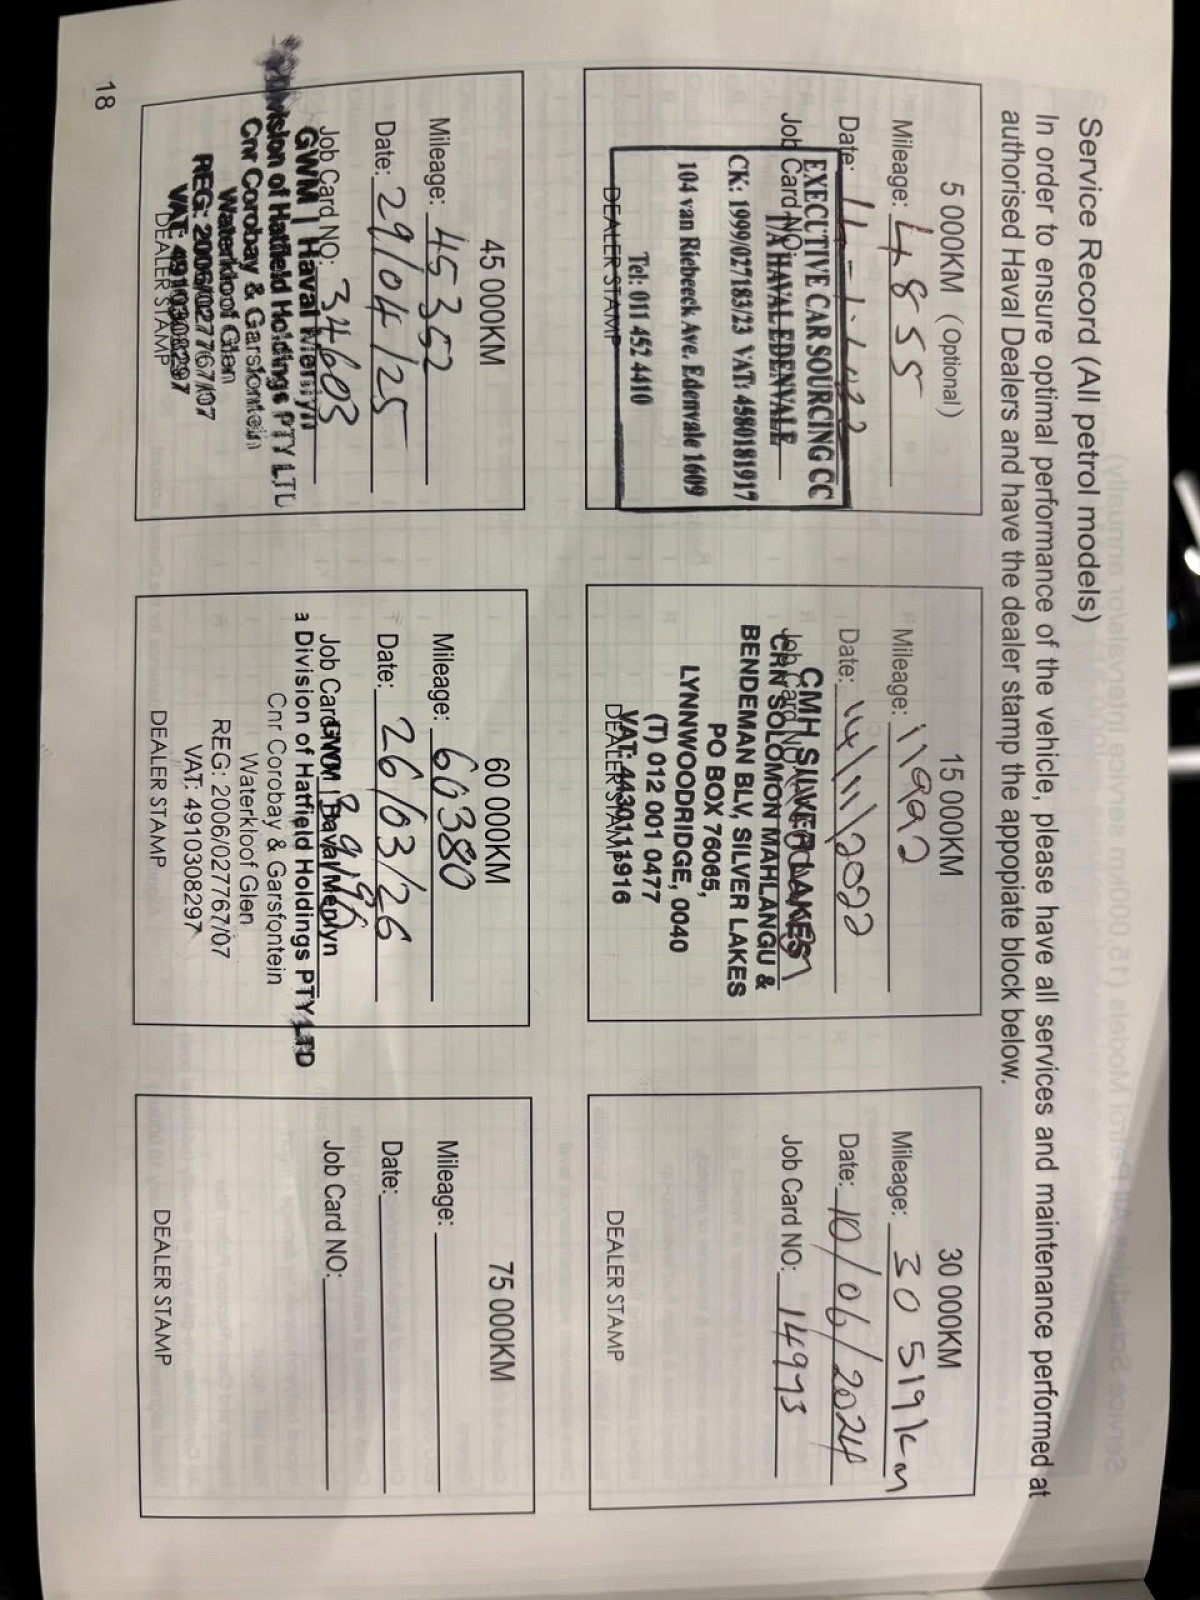 Service Record (All petrol models)
In order to ensure optimal performance of the vehicle, please have all services and maintenance performed at
authorised Haval Dealers and have the dealer stamp the appopiate block below.
5 000KM (Optional)
Mileage: 4855
Date:
EXECUTIVE CAR SOURCING CC
Job Card NO:
T/A HAVAL EDENVALE
CK: 1999/027183/23 VAT: 4580181917
104 van Riebeeck Ave. Edenvale 1609
Tel: 011 452 4410
DEALER STAMP
15 000KM
Mileage: 11992
Date: 14/11/2022
CMH SILVER LAKES
Job Card NO:
CRN SOLOMON MAHLANGU &
BENDEMAN BLV, SILVER LAKES
PO BOX 76065,
LYNNWOODRIDGE, 0040
(T) 012 001 0477
VAT: 4430111916
DEALER STAMP
30 000KM
Mileage: 30 519km
Date: 10/06/2024
Job Card NO: 14993
DEALER STAMP
45 000KM
Mileage: 45352
Date: 29/04/25
Job Card NO: 34603
GWM | Haval Menlyn
Division of Hatfield Holdings PTY LTD
Cnr Corobay & Garsfontein
Waterkloof Glen
REG: 2006/027767/07
VAT: 4910308297
DEALER STAMP
60 000KM
Mileage: 60380
Date: 26/03/26
Job Card
GWM | Haval Menlyn
a Division of Hatfield Holdings PTY LTD
Cnr Corobay & Garsfontein
Waterkloof Glen
REG: 2006/027767/07
VAT: 4910308297
DEALER STAMP
75 000KM
Mileage:
Date:
Job Card NO:
DEALER STAMP
18